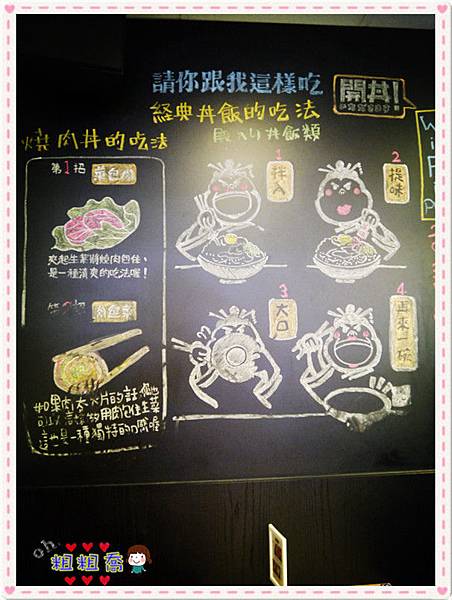 請你跟我這樣吃
開丼!
經典丼飯的吃法
燒肉丼的吃法
第1招 菜包肉
夾起生菜將燒肉包住、
是一種清爽的吃法喔!
第2招 肉包菜
如果肉太大片的話
可以這樣吃用肉包住生菜
這也是一種獨特的吃喔
1
拌入
2
提味
3
大口
4
再來一碗
oh
粗粗喬